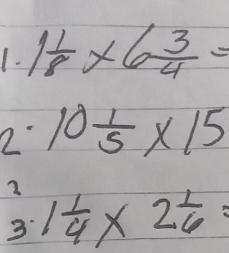 1. 1 1/8 × 6 3/4 =
2. 10 1/5 × 15
2
3. 1 1/4 × 2 1/6 =